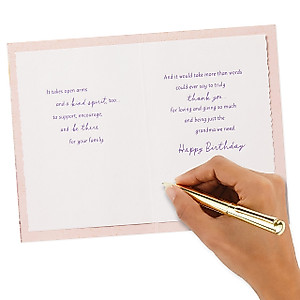 It takes open arms
and a kind spirit, too,
to support, encourage,
and be there
for your family.
And it would take more than words
could ever say to truly
thank you
for loving and giving so much
and being just the
grandma we need.
Happy Birthday